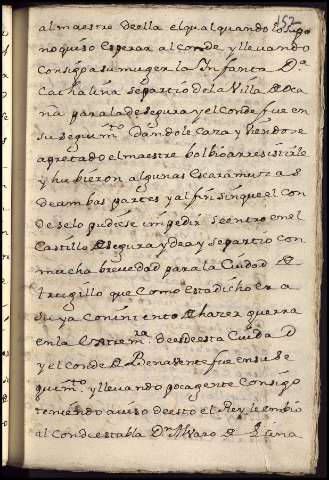 52
al maestre de ella el qual quando lo supo
no quiso esperar al conde y llevando
consigo a su muger la Infanta D.ª
Cathalina se partio de la Villa de Oca
ña para la de segura y el Conde fue en
su seguim.to dandole caza y viendose
apretado el maestre bolbio a resistirle
y hubieron algunas escaramuzas
de ambas partes y al fin sin que el con
de se lo pudiese impedir se entro en el
Castillo de segura y de ay se partio con
mucha brevedad para la Ciudad de
trugillo que como esta dicho era
suya con intento de hazer guerra
en la Extrem.ra desde esta Ciudad
y el conde de Benavente fue en su se
guim.to y llevando poca gente consigo
teniendo aviso de esto el Rey le embio
al Condestable D.n Alvaro de Luna